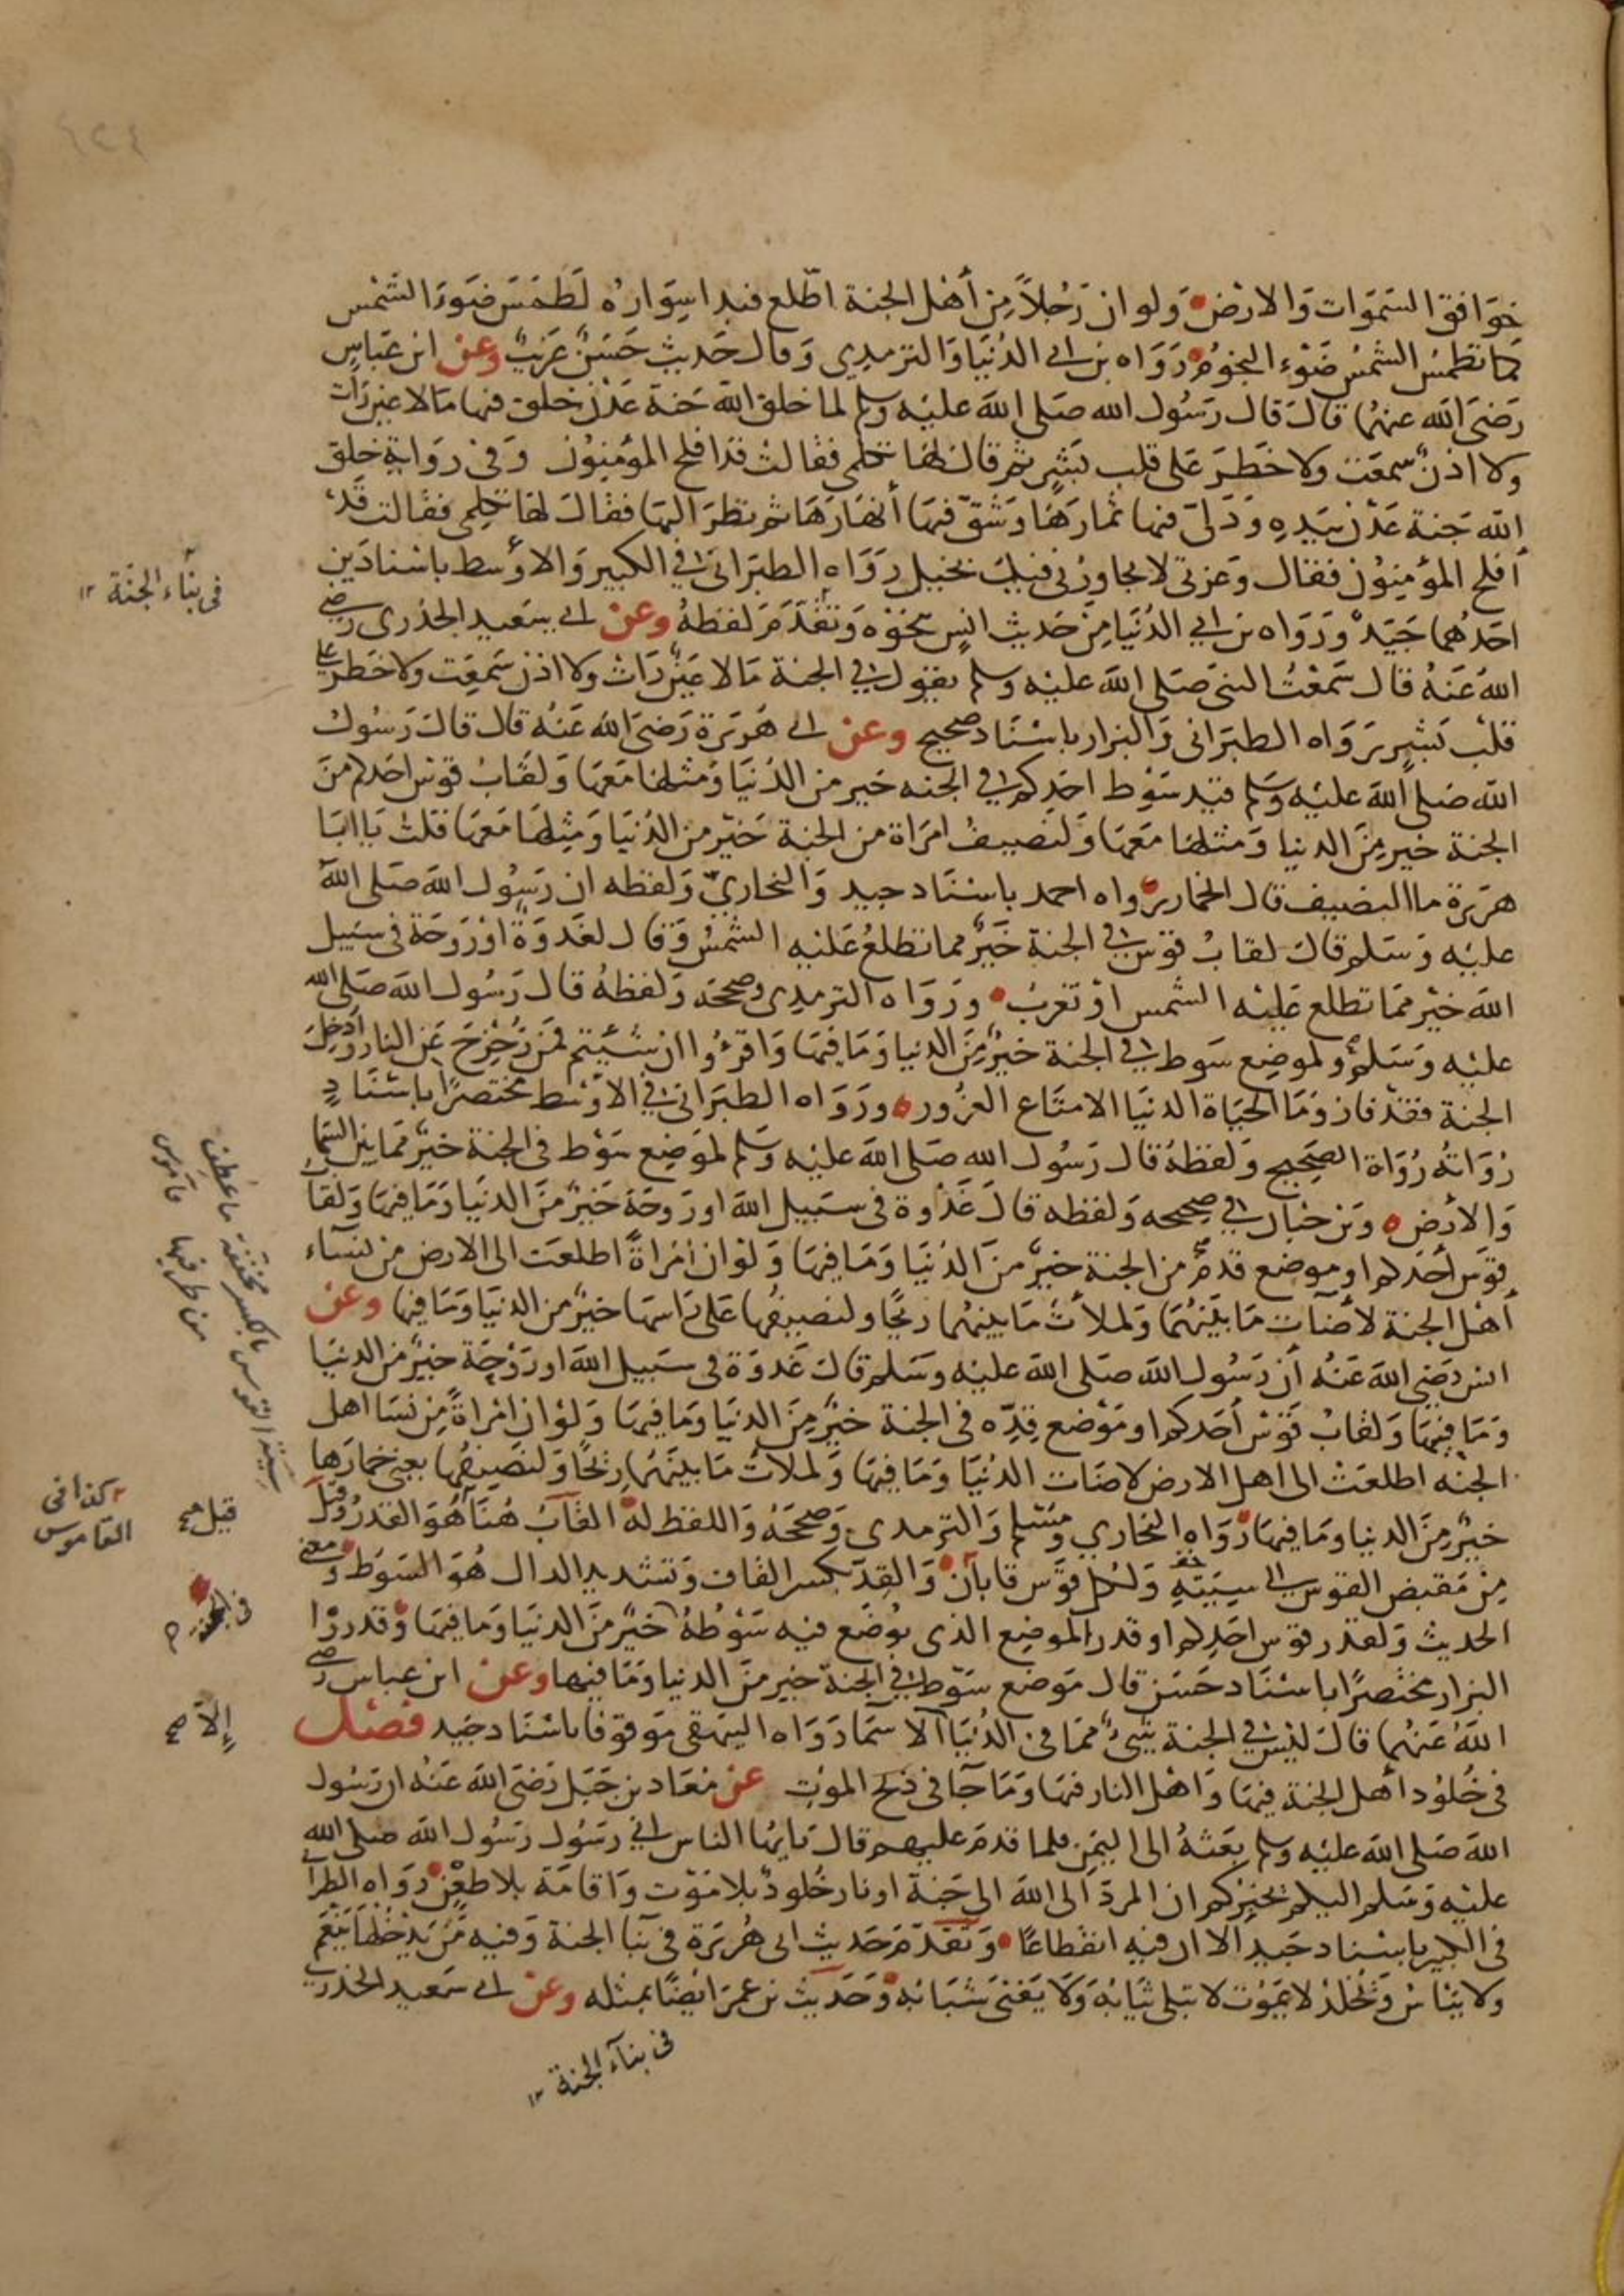 خوافق السموات والارض ولو ان رَجُلاً مِن أهْل الجنة اطّلع فبدا سواره لَطمَسَ ضوءَ الشمْس
كما تطمسُ الشمسُ ضوْء النجوم رَوَاه بن ابي الدُنيَا وَالترمذي وَقال حَديث حَسَنٌ غريبٌ وعن ابن عَباسٍ
رَضىَ الله عنهُما قالَ قال رَسُول الله صَلى الله عليْه وسلم لما خلق الله جَنة عَدْن خلق فيها مَا لا عين رَات
ولا اذنٌ سمعَت ولا خطرَ عَلى قلب بَشرٍ ثم قال لهَا تكلمى فقالت قد افلح المؤمِنوُن وَفى روَاية خلق
الله جَنة عَدْن بيَدِهِ وَدَلىّ فيها ثمارَهَا وَشقّ فيهَا أنهَارَهَا ثم نظرَ اليهَا فقالَ لهَا تكلمى فقالت قدْ
أفلح المؤمِنوُن فقال وَعزتى لا يجاورُنى فيكِ بخيل رَوَاه الطبَرَانى في الكبير وَالاوْسط باسْنادَين
احَدهُما جَيّدٌ وَرَوَاه بن ابي الدُنيَا مِن حَديث انسٍ بنحوْه وَتقدَّمَ لفظهُ وعن ابي سَعيد الخذرى رضي
اللهُ عَنهُ قال سَمعْتُ النبىَ صَلى الله عليْه وسلم يقوُل في الجنة مَا لا عَينٌ رَات ولا اذن سَمعَت ولا خطرَ على
قلب بَشرٍ رَوَاه الطبَرَانى وَالبزار باسْنَاد صحيح وعن ابي هُرَيرَة رَضىَ الله عَنهُ قال قال رَسُول
الله صَلى الله عليْه وسَلم قيْد سَوْط احَدكم في الجنه خَير من الدُنيَا وَمثلها مَعهَا وَلقابُ قوْس احَدكم منَ
الجنة خير مِنَ الدنيا وَمثلها مَعهَا وَلنصيفُ امرَاة من الجنة خَيْر من الدُنيَا وَمِثلهَا مَعهَا قلتُ يَا ابَا
هرَيرَة مَا النصيف قال الخمار رواه احمد باسْنَاد جيد وَالبخاريّ وَلفظه ان رَسُول الله صَلى الله
عليْه وَسَلم قال لقابُ قوْس في الجنة خَيرٌ مما تطلعُ عَليْه الشمْسُ وَقال لغَدوَةٌ اوْ رَوحَة فى سَبيل
الله خيْر ممَا تطلع عَليْه الشمس اوْ تغربُ وروَاه الترمذى وصححَه وَلفظهُ قال رَسُول الله صَلى الله
عليْه وَسَلم ولموضِع سَوط في الجنة خيرٌ مِنَ الدنيا وَمَا فيهَا وَاقرءُوا ان شئتم فمَن زحْزِحَ عَن النار وَادخِلَ
الجنة فقدْ فاز وَمَا الحيَاة الدنيَا الا متاع الغرُور ورَوَاه الطبَرَانى في الاوْسَط مختصرًا باسْنَادٍ
رُوَاتهُ رُوَاة الصَحِيح وَلفظهُ قال رَسُول الله صَلى الله عليْه وسَلم لموْضِع سَوْط فى الجنة خيرٌ ممَا بين السَمَاء
وَالارْض وَبن حبان في صحيحه وَلفظه قالَ غَدْوة فى سبَيل الله او رَوحَةٌ خَيْرٌ منَ الدنيَا وَمَا فيهَا وَلقابُ
قوْسَ أحَدكم او موضع قدمٌ من الجنة خيرٌ منَ الدُنيَا وَمَا فيهَا وَلوْ ان امْرَاةً اطلعَت الى الارض من نسَاء
أهْل الجنة لأضآت مَا بيْنهُمَا وَلملأتْ مَا بينهُما ريحًا ولنصيفهُا عَلى رَاسهَا خيْرٌ من الدنيَا وَمَا فيهَا وعن
انس رضيَ الله عَنهُ أن رَسُول الله صَلى الله عليْه وَسَلم قال غَدوَة فى سَبيل الله او رَوْحَة خيْرٌ من الدنيَا
وَمَا فيهَا وَلقابُ قوْسْ أحَدكم او مَوْضع قِدّه فى الجنة خيْرٌ مِنَ الدنيَا وَمَا فيهَا وَلوْ ان امْرَاةً مِن نسَا اهل
الجنه اطلعَتْ الى اهل الارض لاضَات الدُنيَا وَمَا فيهَا وَلملاتْ مَا بينهُمَا ريْحًا وَلنصَيفهُا يعنى خمارَها
خيْرٌ مِنَ الدنيا ومَا فيهَا رَوَاه البخاري ومُسْلم وَالترمدى وَصححَهُ وَاللفظ لهُ القابُ هُنا هُوَ القدرُ وَقيل
مِنْ مَقبض القوس الى سِيَتِهِ وَلكل قوَس قابَان وَالقِدّ بكسر القاف وَتشديد الدال هُوَ السَوَط وَمعنى
الحديث وَلقدر قوْس احَدِكم او قدر الموضِع الذى يوُضَع فيه سَوْطهُ خيْرٌ منَ الدنيَا وَمَا فيهَا وَقد روَا
البزار مختصرًا باسْنَاد حَسَن قال مَوضع سَوْط في الجنة خير منَ الدنيا وَمَا فيها وعن ابن عباس رضي
اللهُ عَنهُما قالَ ليْس في الجنة شيءٌ ممَا فى الدُنيَا الا سمَا رَوَاه البيهقى مَوقوفا باسْنَاد جَيد فصْل
فى خُلوُد أهل الجنة فيهَا وَاهْل النار فيهَا وَمَا جَا فى ذبح الموْت عن معَاد بن جَبَل رَضىَ الله عَنهُ ان رَسُول
الله صَلى الله عليْه وسلم بعَثهُ الى اليمَن فلما قدمَ عليهم قال يَا ايهَا الناس انى رسَوُل رَسُول الله صَلى الله
عليْه وَسَلم اليكم يخبرُكم ان المردّ الى الله الى جَنة او نار خُلودٌ بلا موْت وَاقامَة بلا طعْن رَوَاه الطبرا
فى الكبير باسْناد جَيد الا ان فيه انقطاعًا وَتقدّمَ حَديث ابى هُرَيرَة فى بنا الجنة وَفيه مَن يدخلها ينعَم
ولا يَبْأسْ وَيُخلدْ لا يَموُت لا تبلى ثيَابُهُ وَلا يَفنى شبَابُهُ وَحَديث بن عمرَ ايْضًا بمثله وعن ابي سَعيد الخذري
فى بناء الجنة ١٢
فى بنآء الجنّة ١٢
سِيَة القوس بالكسر مخففة ما عُطِف
من طرفيها قاموس
كذا فى
القاموس
قيل صح
فى الجنة
إلاّ صح